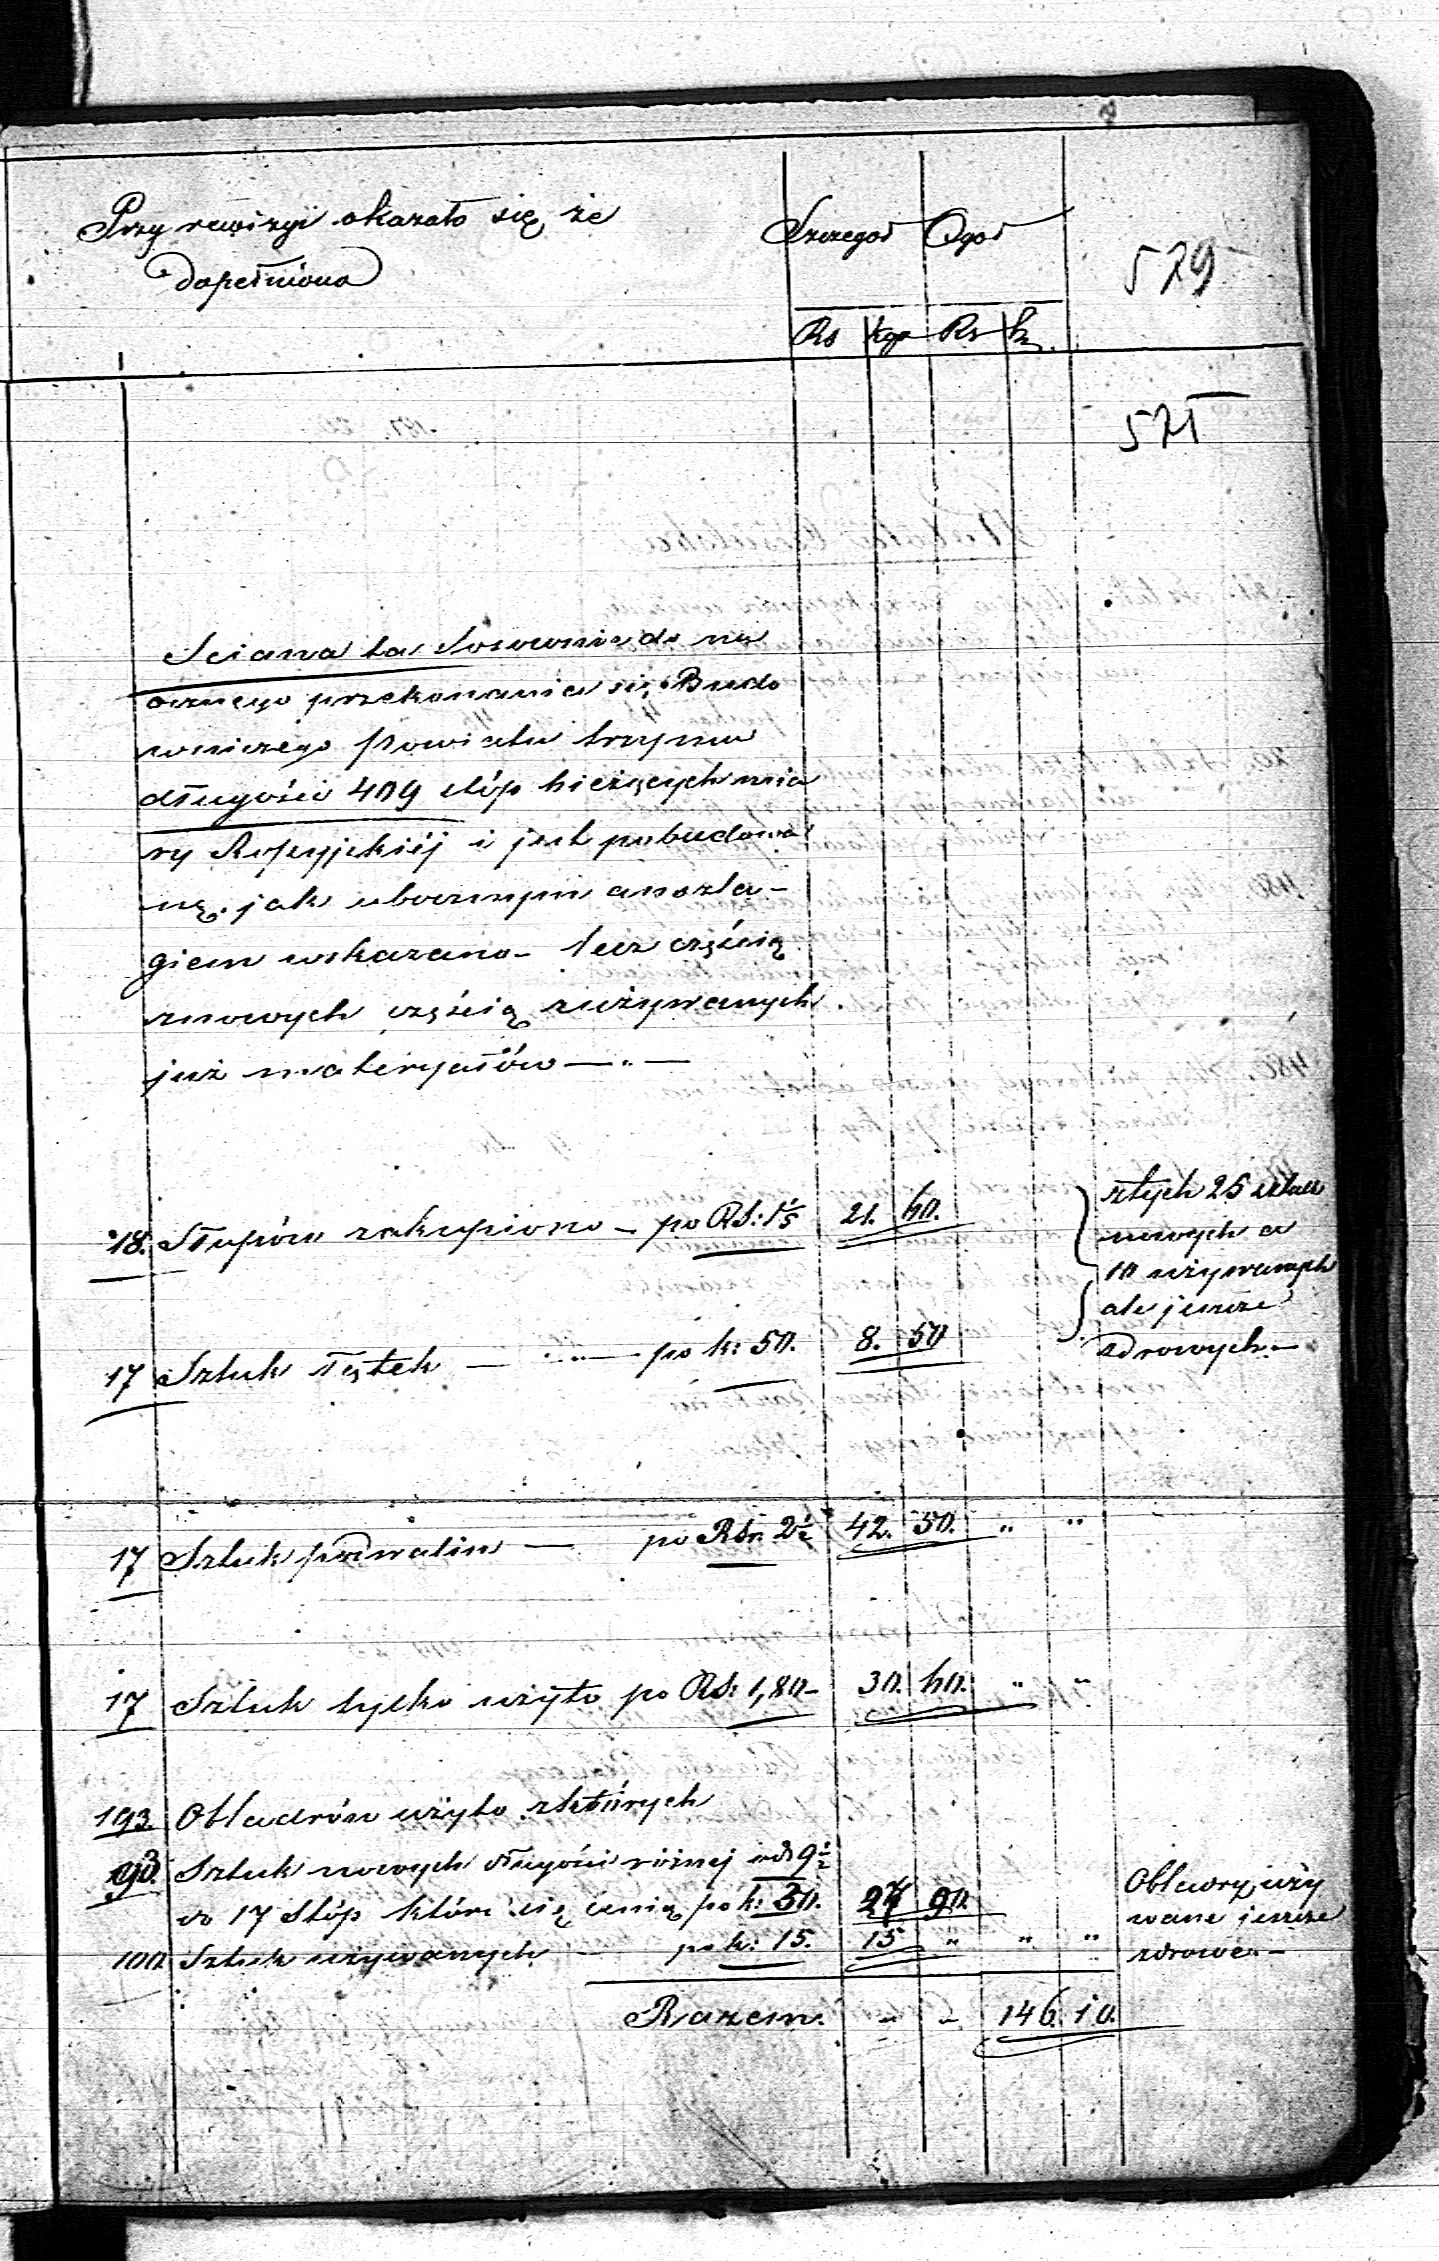 Przy rewizyi okazało się że
dopełniono
Szczegoł Ogoł
Rs kop Rs k.
529
521
Sciana ta stosownie do na
ocznego przekonania się Budo
wniczego Powiatu trzyma
długości 409 stóp bieżących mia
ry Rossyjskiéj i jest pobudowa
ną jak ubocznym anszla-
giem wskazano - lecz częścią
znowych częścią zużywanych
już materyałów —„—
18. Słupów zakupiono - po RS: 1 1/5 21. 60.
zktych 25 sztuk
nowych a
10 używanych
ale jeszcze
zdrowych. -
17 Sztuk Tętek — „ — po k: 50. 8. 50
17 Sztuk podwalin — po RSr. 2 1/2 42. 50. „ „
17 Sztuk tylko użyto po RS: 1,80 - 30. 60. „ „
193. Obladrów użyto zktórych
93. Sztuk nowych długości różnej od 9 1/2
do 17 Stóp które się cenią po k: 30. 27 90.
100 Sztuk używanych - po k: 15. 15 „ „ „
Obladry uży
wane jeszcze
zdrowe. -
Razem. „ „ 146. 10.